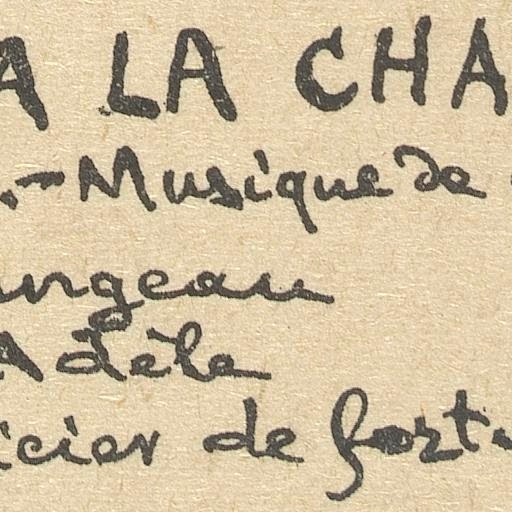 A LA CHA
.-Musique de
ungeau
Adèle
icier de fort